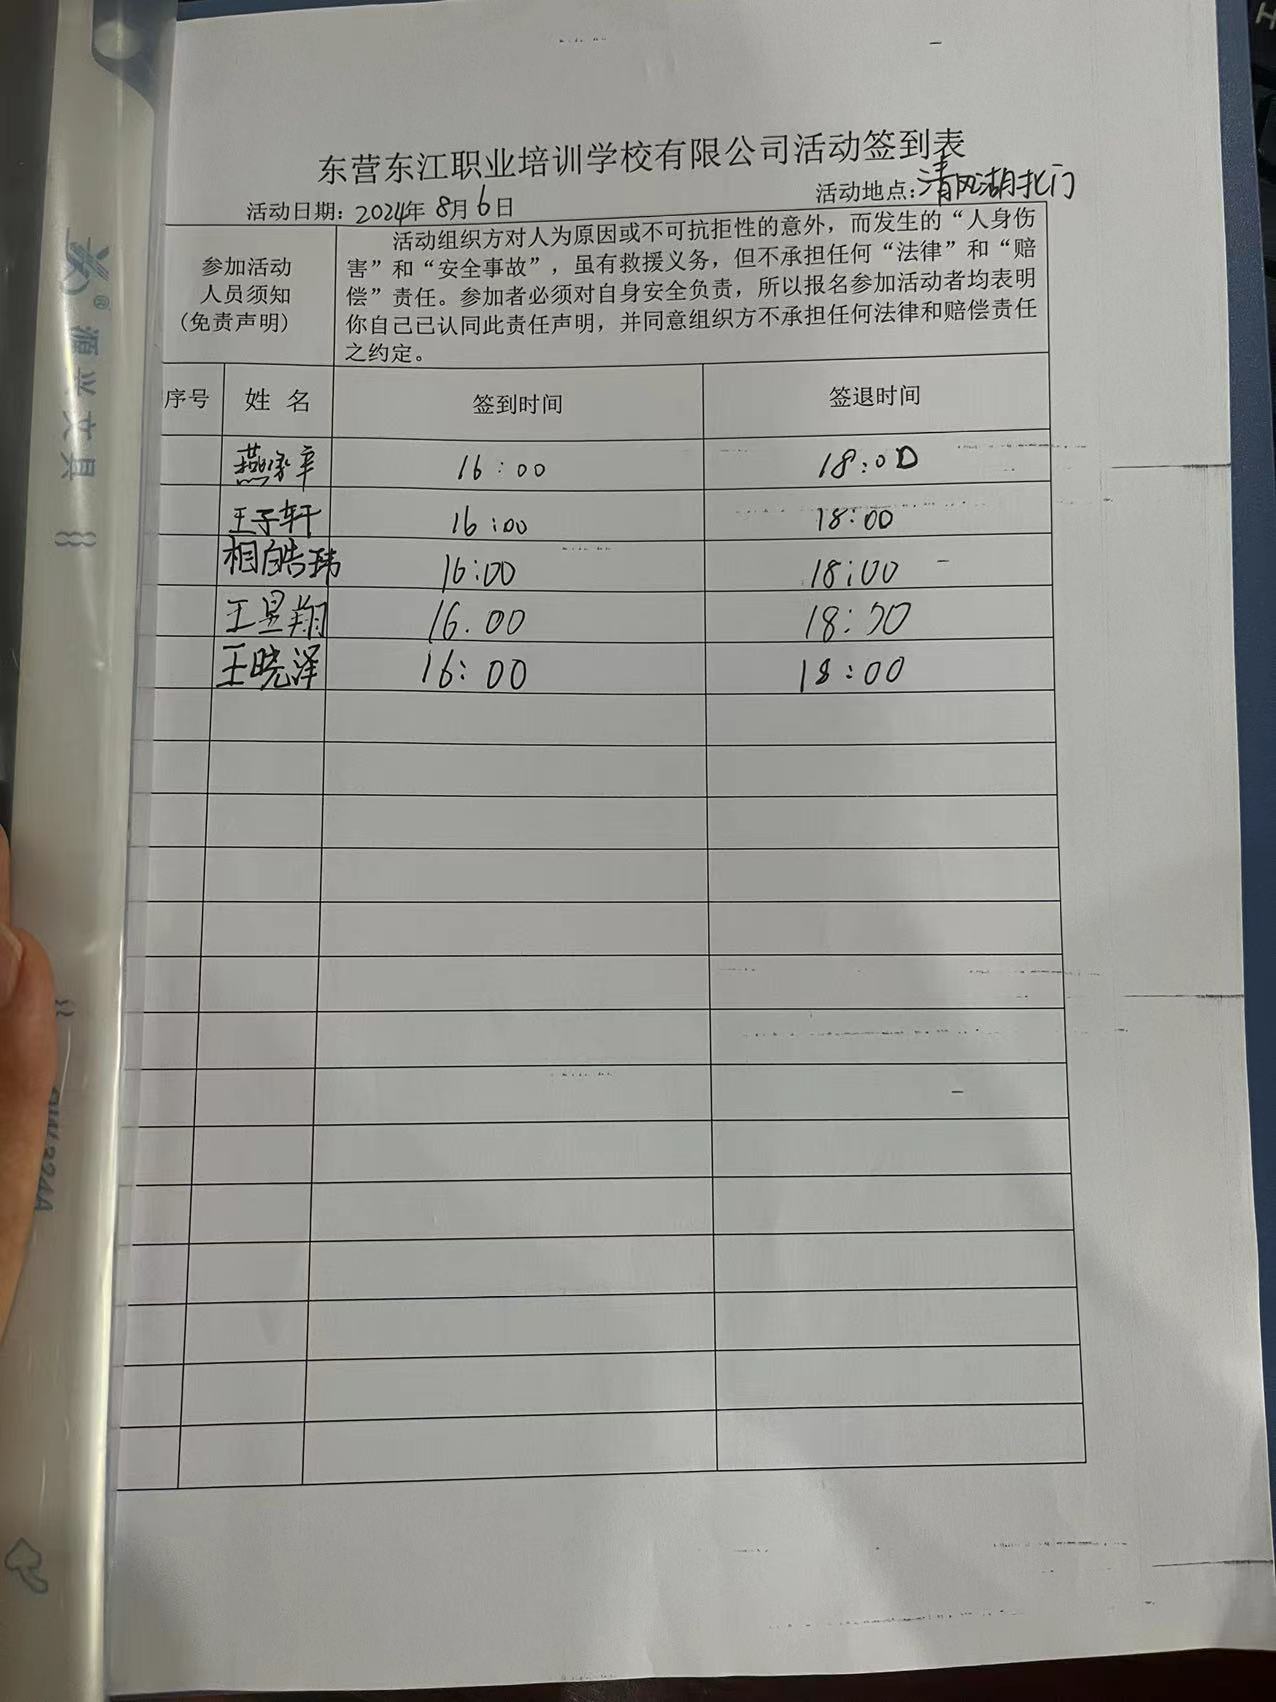 东营东江职业培训学校有限公司活动签到表
活动日期：2024年 8月6日 活动地点：清风湖北门
参加活动
人员须知
（免责声明）
活动组织方对人为原因或不可抗拒性的意外，而发生的“人身伤
害”和“安全事故”，虽有救援义务，但不承担任何“法律”和“赔
偿”责任。参加者必须对自身安全负责，所以报名参加活动者均表明
你自己已认同此责任声明，并同意组织方不承担任何法律和赔偿责任
之约定。
序号 姓 名 签到时间 签退时间
16：00 18：00
王子轩 16：00 18：00
相皓玮 16：00 18：00
王昱翔 16.00 18：00
王晓泽 16：00 18：00
文具